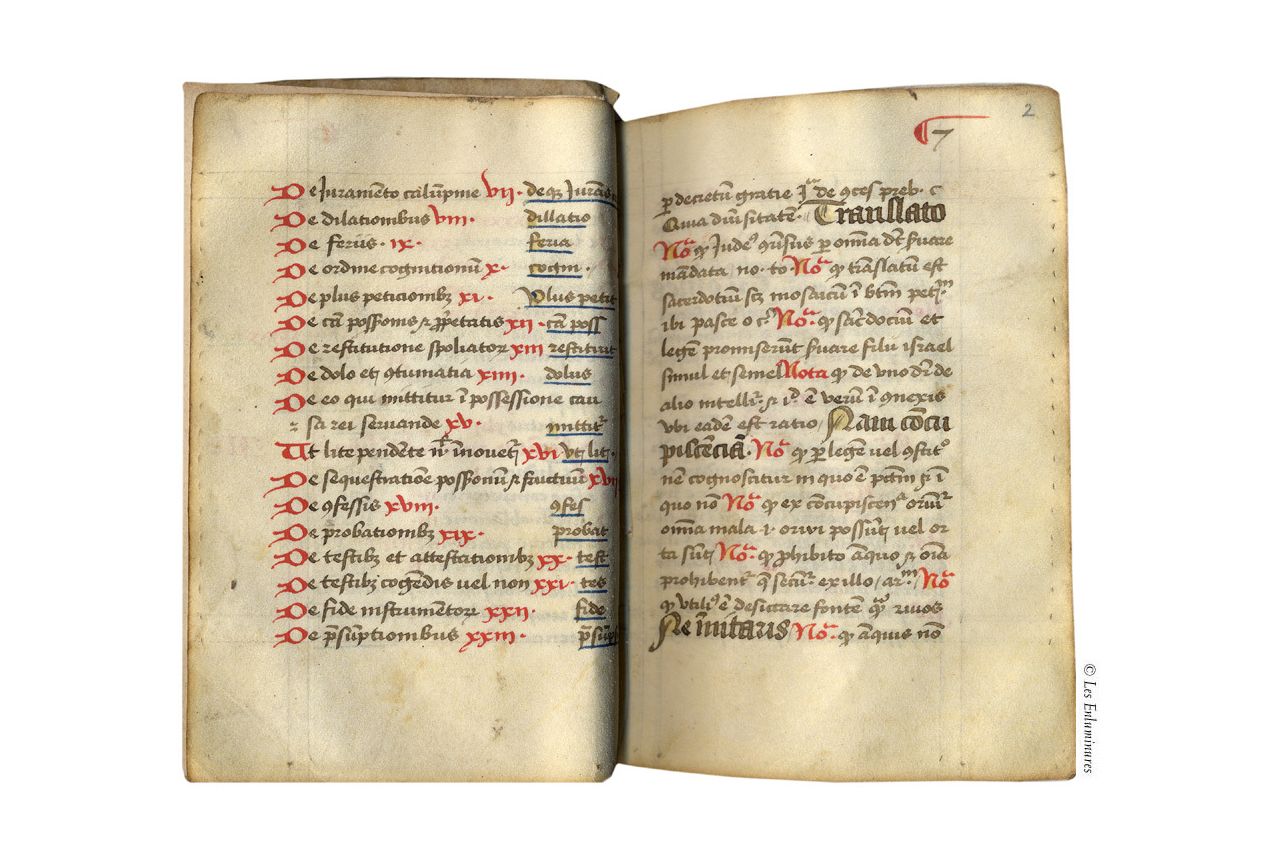 De Juramēto calūpnie VII· de qȝ Jurā
De dilationibus VIII· dillatio
De feriis· IX· feria
De ordine cognitionū X· cogn·
De plus peticiōibȝ XI· Plus petit
De cā possōnis ⁊ ꝓpetatis XII· cā poss
De restitutione spoliatoꝝ XIII restituit
De dolo et ꝯtumatia XIIII· dolus
De eo qui mittitur ī possessione cau
sa rei seruande XV· mittitᷣ
Ut lite pendēte nͥ īnouetᷣ XVI· vt lit
De sequestratiōe possōnū ⁊ fructuū XVII
De ꝯfessis XVIII· ꝯfes
De probationibȝ XIX· probat
De testibȝ et attestationibȝ XX· test
De testibȝ cogēdis uel non XXI· tes
De fide instrumētoꝝ XXII· fide
De p̄sūptionibus XXIII· p̄sūp
2
¶ 7
ꝑ decretū gratie Jª de ꝯces preb· c
Quia diūsitatē· Translato
Noª ꝙ Judeꝰ ꝑ om̄ia dꝫ ẜuare
mādata no· to Noª ꝙ trāslatū est
sacerdotiū scȝ mosaicū ī petᷣm
ibi pasce o c· Noª· ꝙ sac̄dociū et
legē promiserūt ẜuare filii israel
simul et semel Nota ꝙ de vno dr̄ de
alio intelliᷣ· ⁊ ē verū ī ꝯnexis
vbi eadē est ratio Nam cōcu
piscēciā· Noª ꝙ ꝑ legē uel ꝯstitᵒ
nē cognoscitur in quo ē pctm̄ ⁊ ī
quo nō Noª ꝙ ex cōcupiscenª oriūᷣ
om̄ia mala ⁊ oriri possūt uel or
ta sūt Noª· ꝙ ꝓhibito āquo ⁊ oīa
prohibentᷣ q̄ secūᷣ ex illo / arᷣm Noª
ꝙ vtiliꝰ ē desiccare fontē qͣꝫ riuos
Ne īnitaris Noª· ꝙ āquis nō
© Les Enluminures